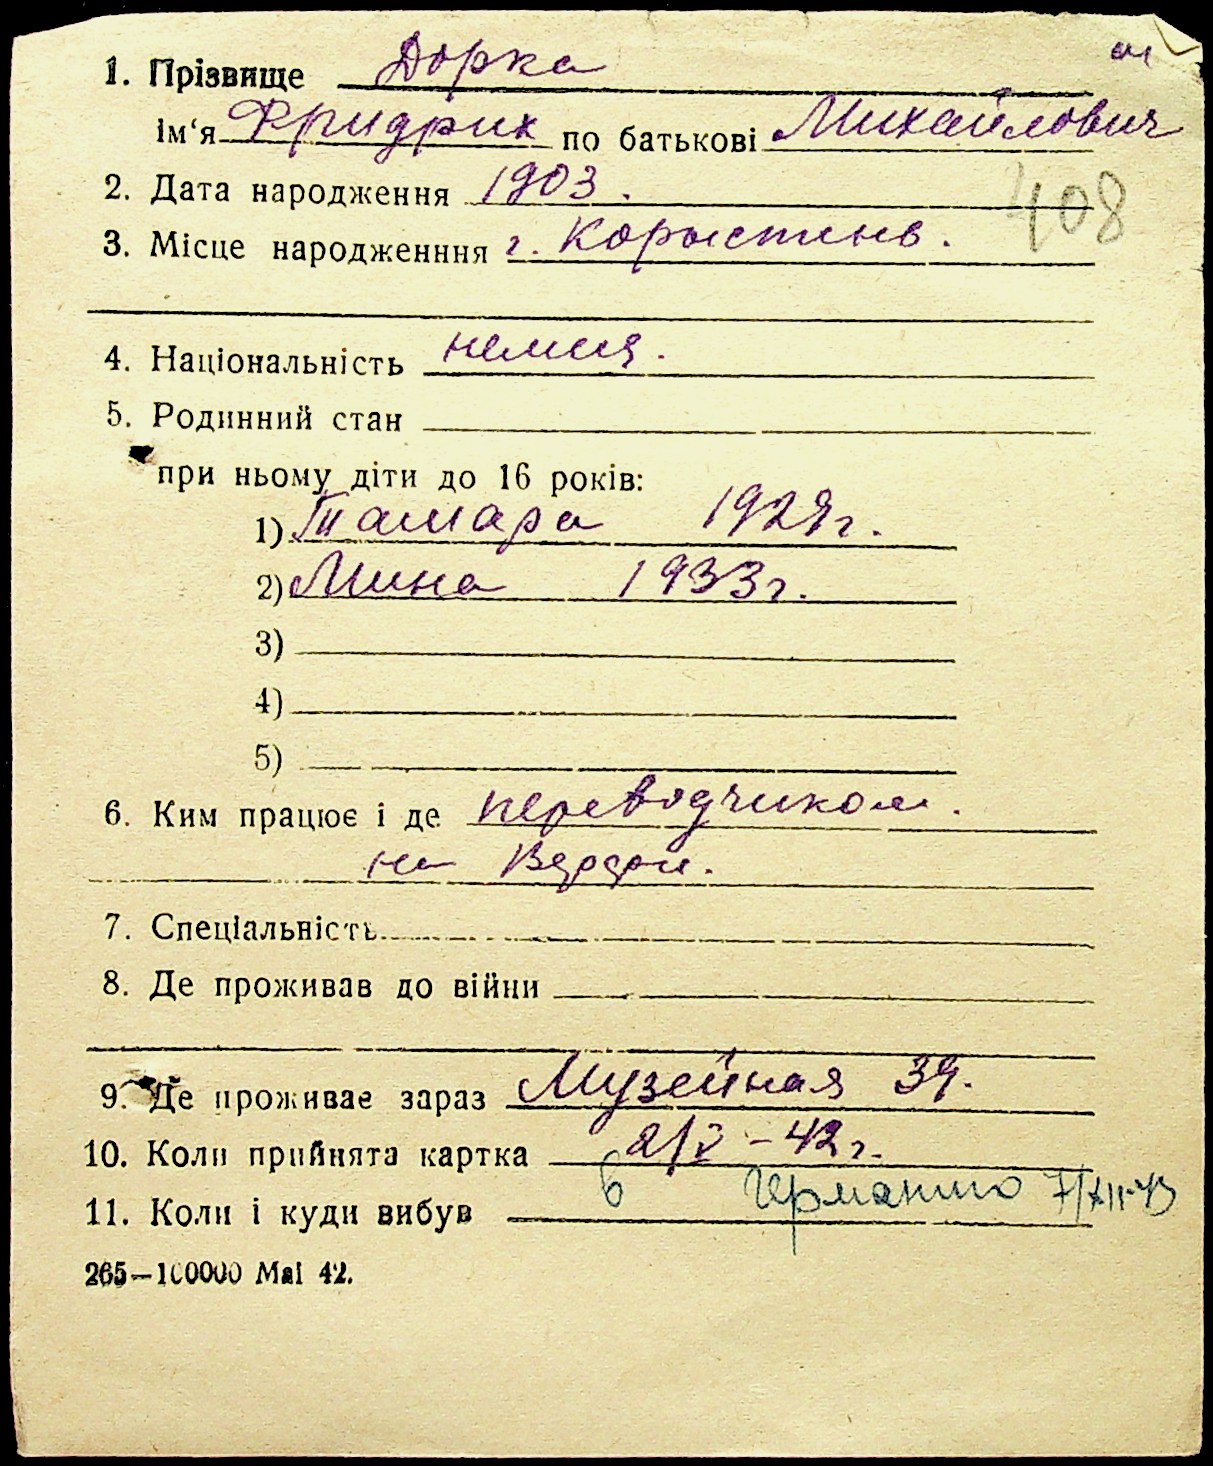 1. Прізвище Дорка
ім‘я Фридрих по батькові Михайлович
2. Дата народження 1903.
408
3. Місце народженння г. Корыстинь.
4. Національність немец.
5. Родинний стан
при ньому діти до 16 років:
1) Тамара 1929г.
2) Мина 1933г.
3)
4)
5)
6. Ким працює і де переводчиком.
на
7. Спеціальність
8. Де проживав до війни
9. Де проживає зараз Музейная 39.
10. Коли прийнята картка 2/X-42г.
11. Коли і куди вибув в Германию 7/XII-43
265—100000 Mai 42.